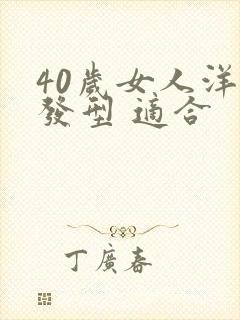 40歲女人洋
發型 適合
丁廣春